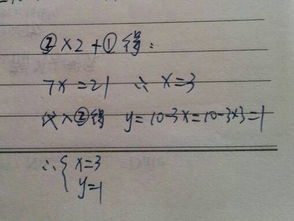 ②×2+①得:
7x=21 ∴ x=3
代入②得 y=10-3x=10-3×3=1
∴{x=3
y=1